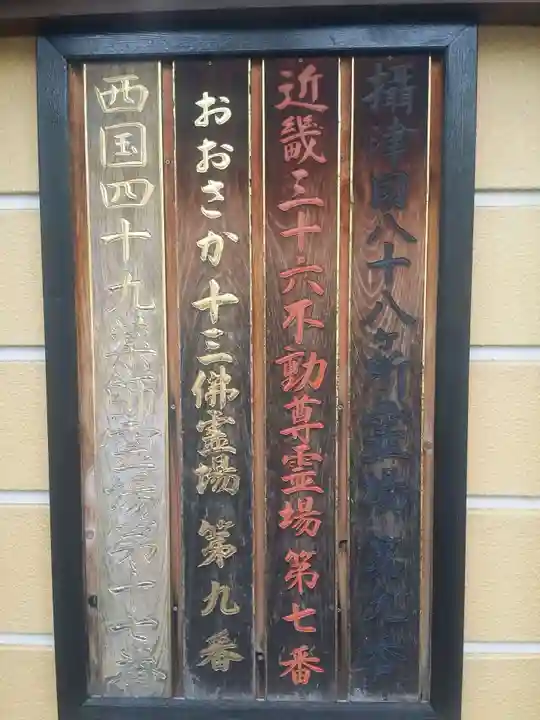 攝津國八十八ヶ所霊場 第九番
近畿三十六不動尊霊場 第七番
おおさか十三佛霊場 第九番
西国四十九薬師霊場第十七番